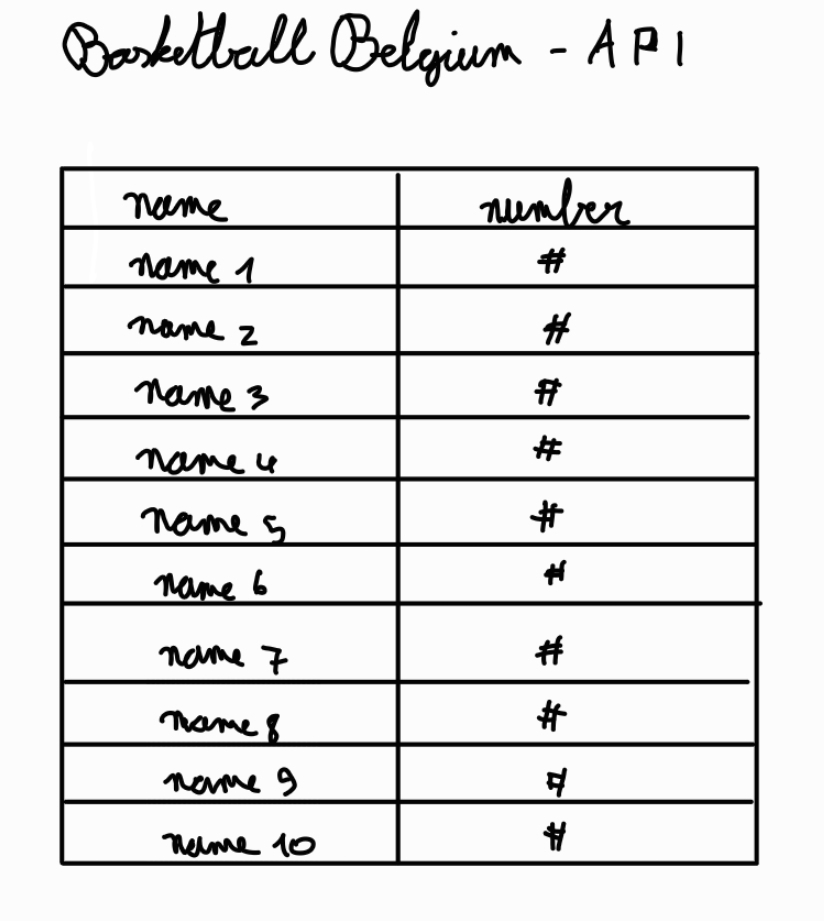 Basketball Belgium - API
name number
name 1 #
name 2 #
name 3 #
name 4 #
name 5 #
name 6 #
name 7 #
name 8 #
name 9 #
name 10 #